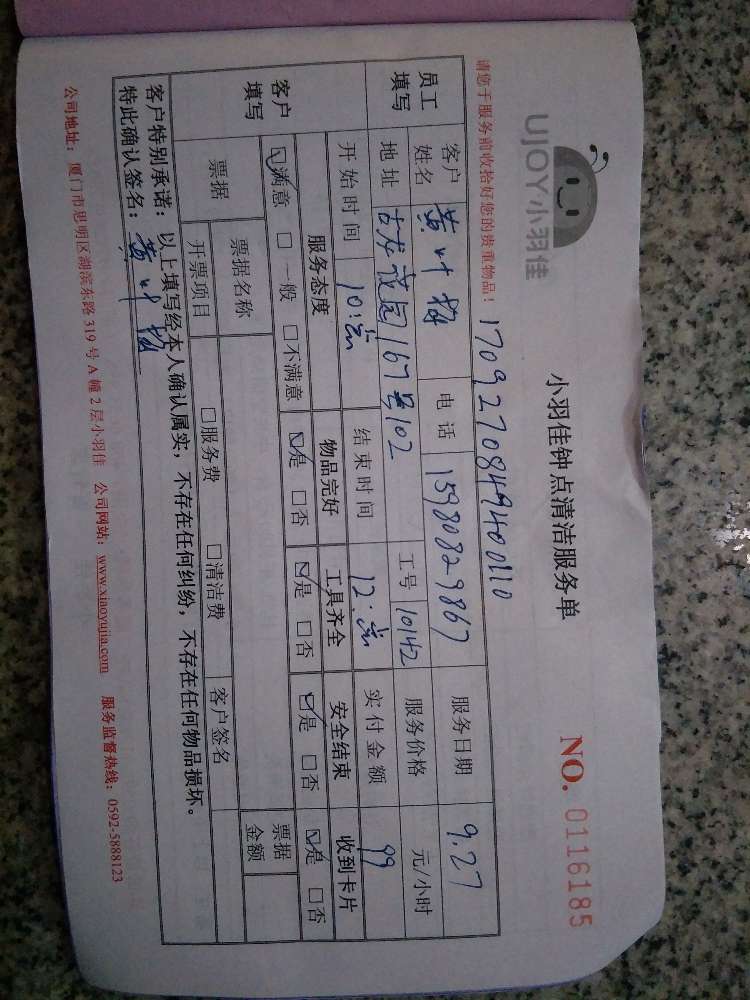 UJOY小羽佳
小羽佳钟点清洁服务单
NO. 0116185
请您于服务前收拾好您的贵重物品！ 170927084949400110
员工填写 客户姓名 黄叶 电话 15980829867 服务日期 9.27
地址 古龙花园167号102 工号 10142 服务价格 元/小时
开始时间 10: 结束时间 12: 实付金额 99
客户填写 服务态度 物品完好 工具齐全 安全结束 收到卡片
☑满意 □一般 □不满意 ☑是 □否 ☑是 □否 ☑是 □否 ☑是 □否
票据 票据名称 票据金额
开票项目 □服务费 □清洁费 客户签名
客户特别承诺：以上填写经本人确认属实，不存在任何纠纷，不存在任何物品损坏。
特此确认签名：黄叶
公司地址：厦门市思明区湖滨东路 319 号 A 幢 2 层小羽佳 公司网站：www.xiaoyujia.com 服务监督热线：0592-5888123